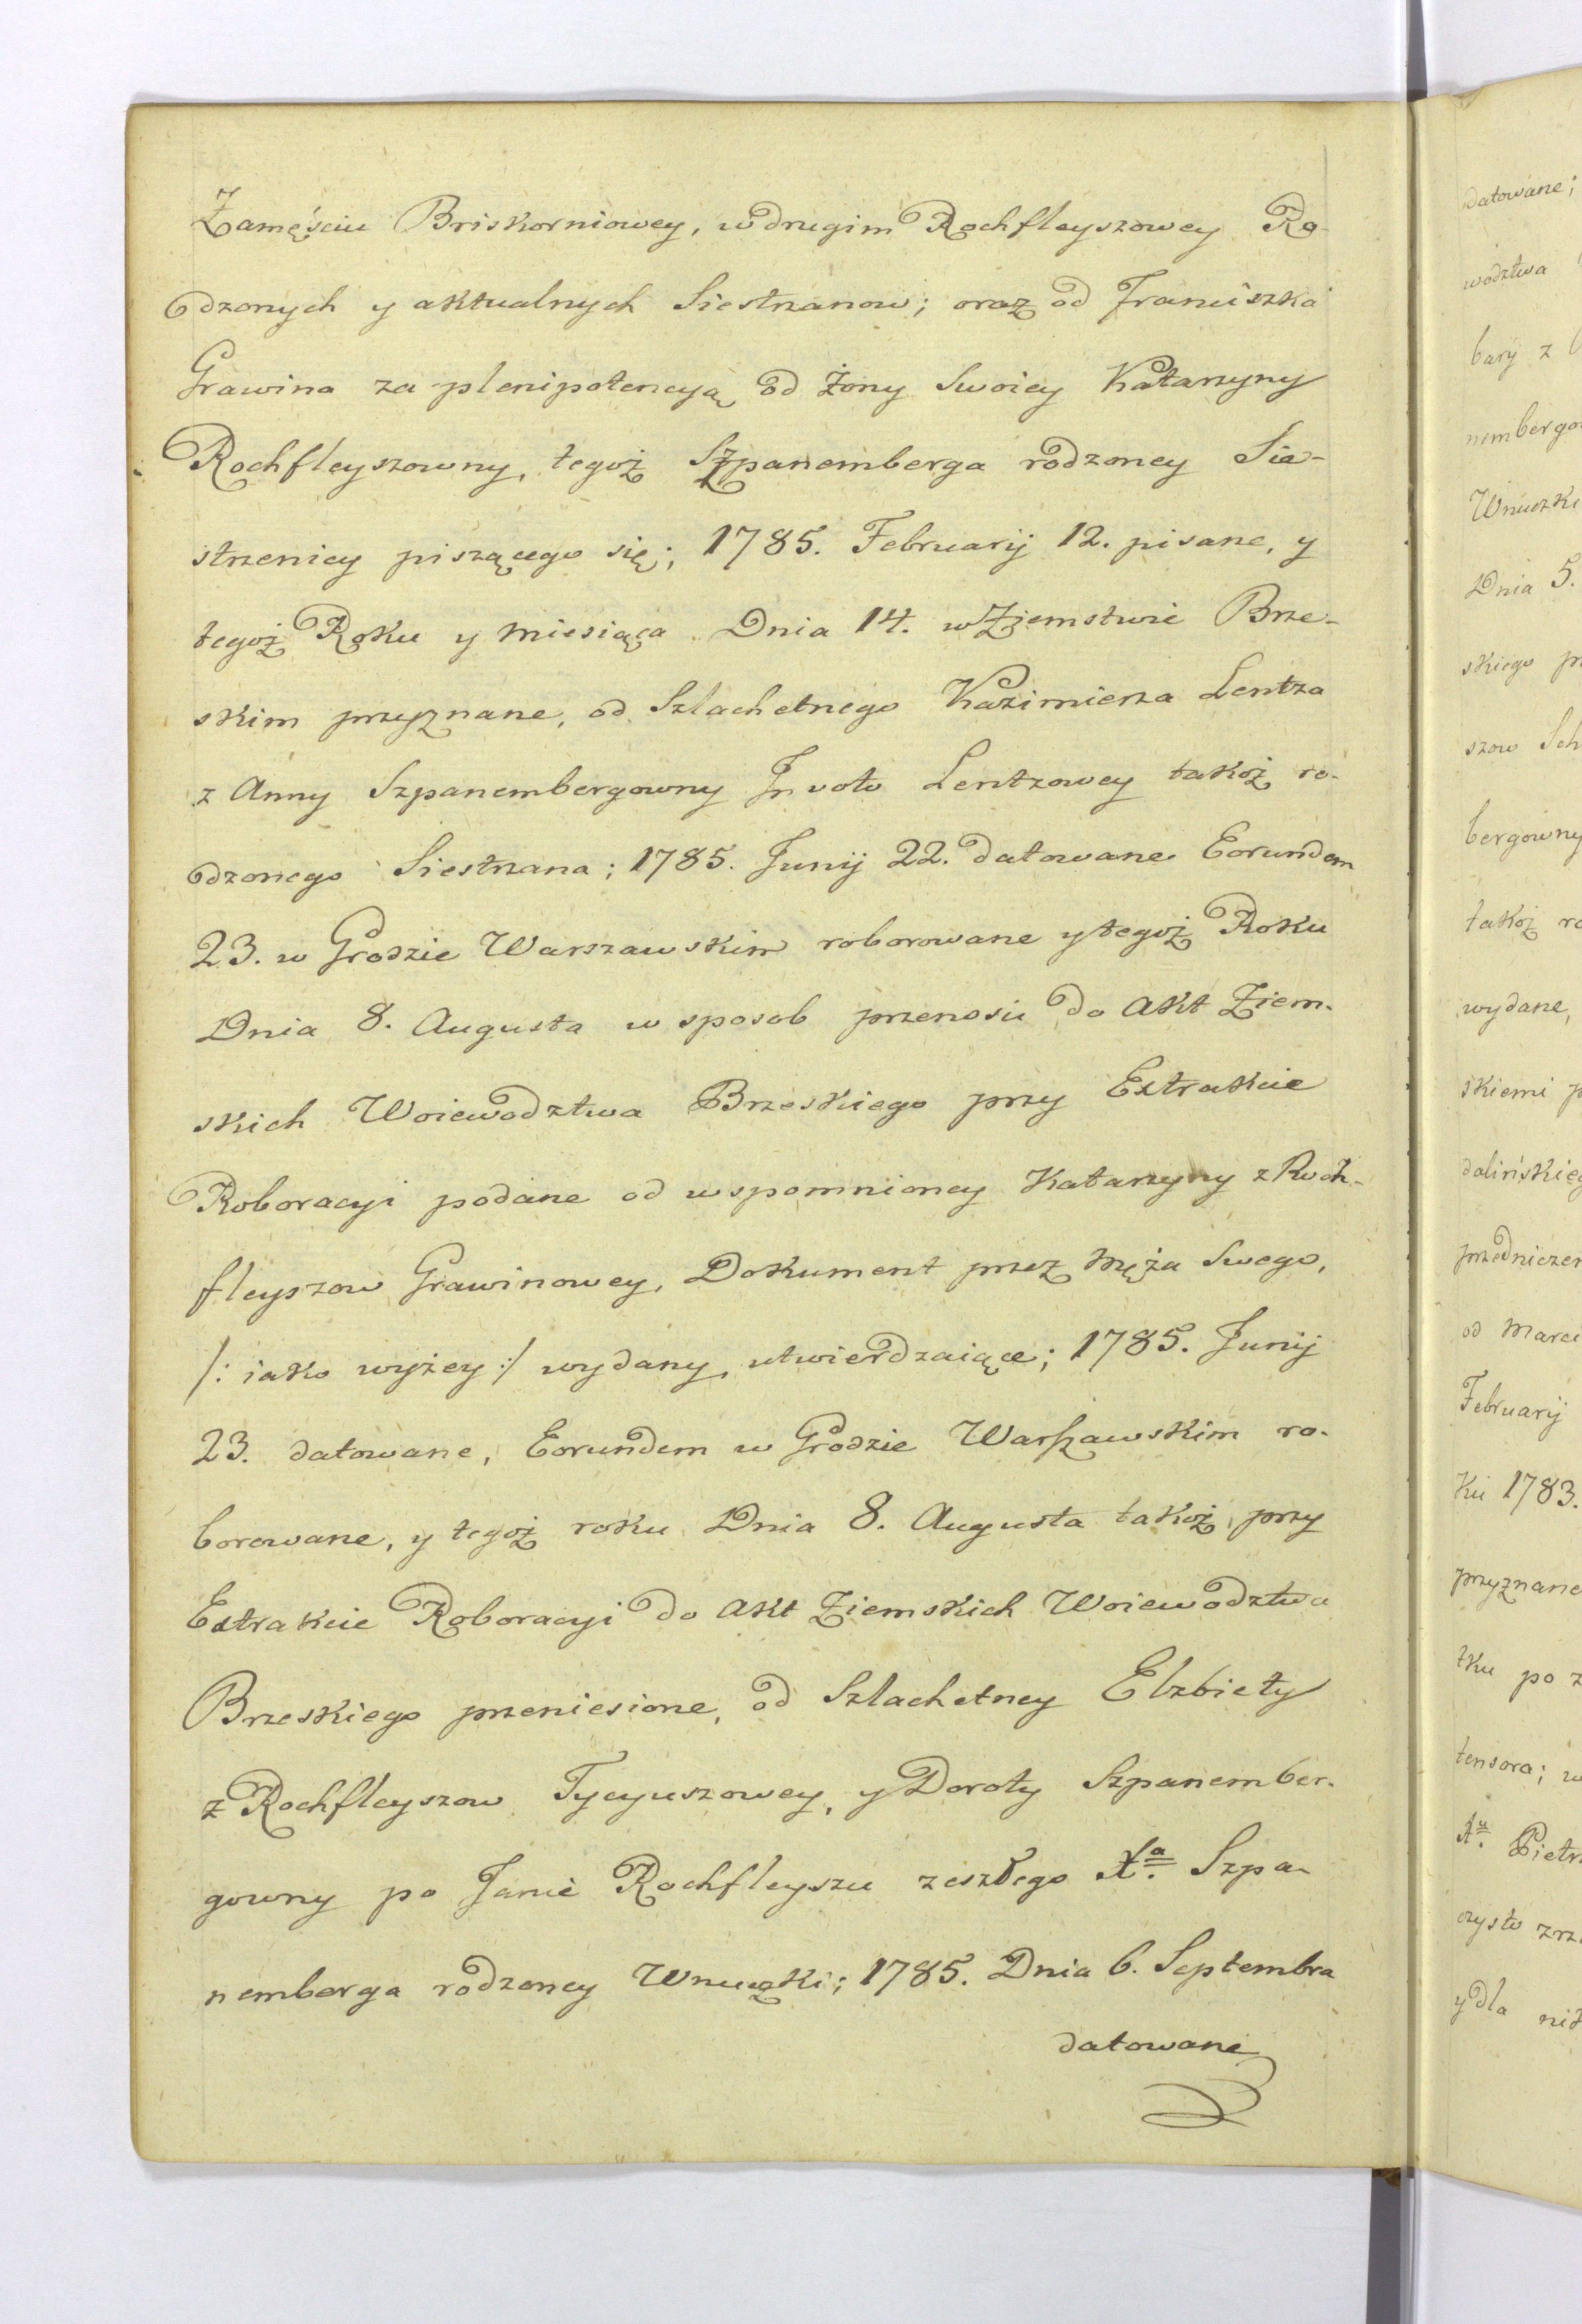 Zamęściu Briskorniowey, w drugim Rochfleyszowey Ro-
dzonych y aktualnych Siestrzanow; oraz od Franciszka
Grawina za plenipotencyą od Żony Swoiey Katarzyny
Rochfleyszowny, tegoż Szpanemberga rodzoney Sie-
strzenicy piszącego się; 1785. Februarij 12. pisane, y
tegoż Roku y Miesiąca Dnia 14. w Ziemstwie Brze-
skim przyznane, od Szlachetnego Kazimierza Lentza
z Anny Szpanembergowny Jn voto Lentzowey takoż ro-
dzonego Siestrzana; 1785. Junij 22. datowane Eorundem
23. w Grodzie Warszawskim roborowane y tegoż Roku
Dnia 8. Augusta w sposob przenosu do Akt Ziem-
skich Woiewodztwa Brzeskiego przy Extrakcie
Roboracyi podane od wspomnioney Katarzyny z Roch-
fleyszow Grawinowey, Dokument przez Męża Swego,
/: iako wyżey :/ wydany, utwierdzaiące; 1785. Junij
23. datowane, Eorundem w Grodzie Warszawskim ro-
borowane, y tegoż roku Dnia 8. Augusta takoż przy
Extrakcie Roboracyi do Akt Ziemskich Woiewodztwa
Brzeskiego przeniesione, od Szlachetney Elzbiety
z Rochfleyszow Tycyuszowey, y Doroty Szpanember-
gowny po Janie Rochfleyszu zeszłego Xa. Szpa-
nemberga rodzoney Wnuczki; 1785. Dnia 6. Septembra
datowane
datowane;
wodztwa
bary z
nembergo
Wnuczki
Dnia 5.
skiego
szow Sch
bergowny
takoż ro
wydane,
skiemi p
dalińskieg
przedniczen
od Marci
Februarij
ku 1783.
przyznane
tku po z
tensora; w
Xu. Pietr
czysto
y dla